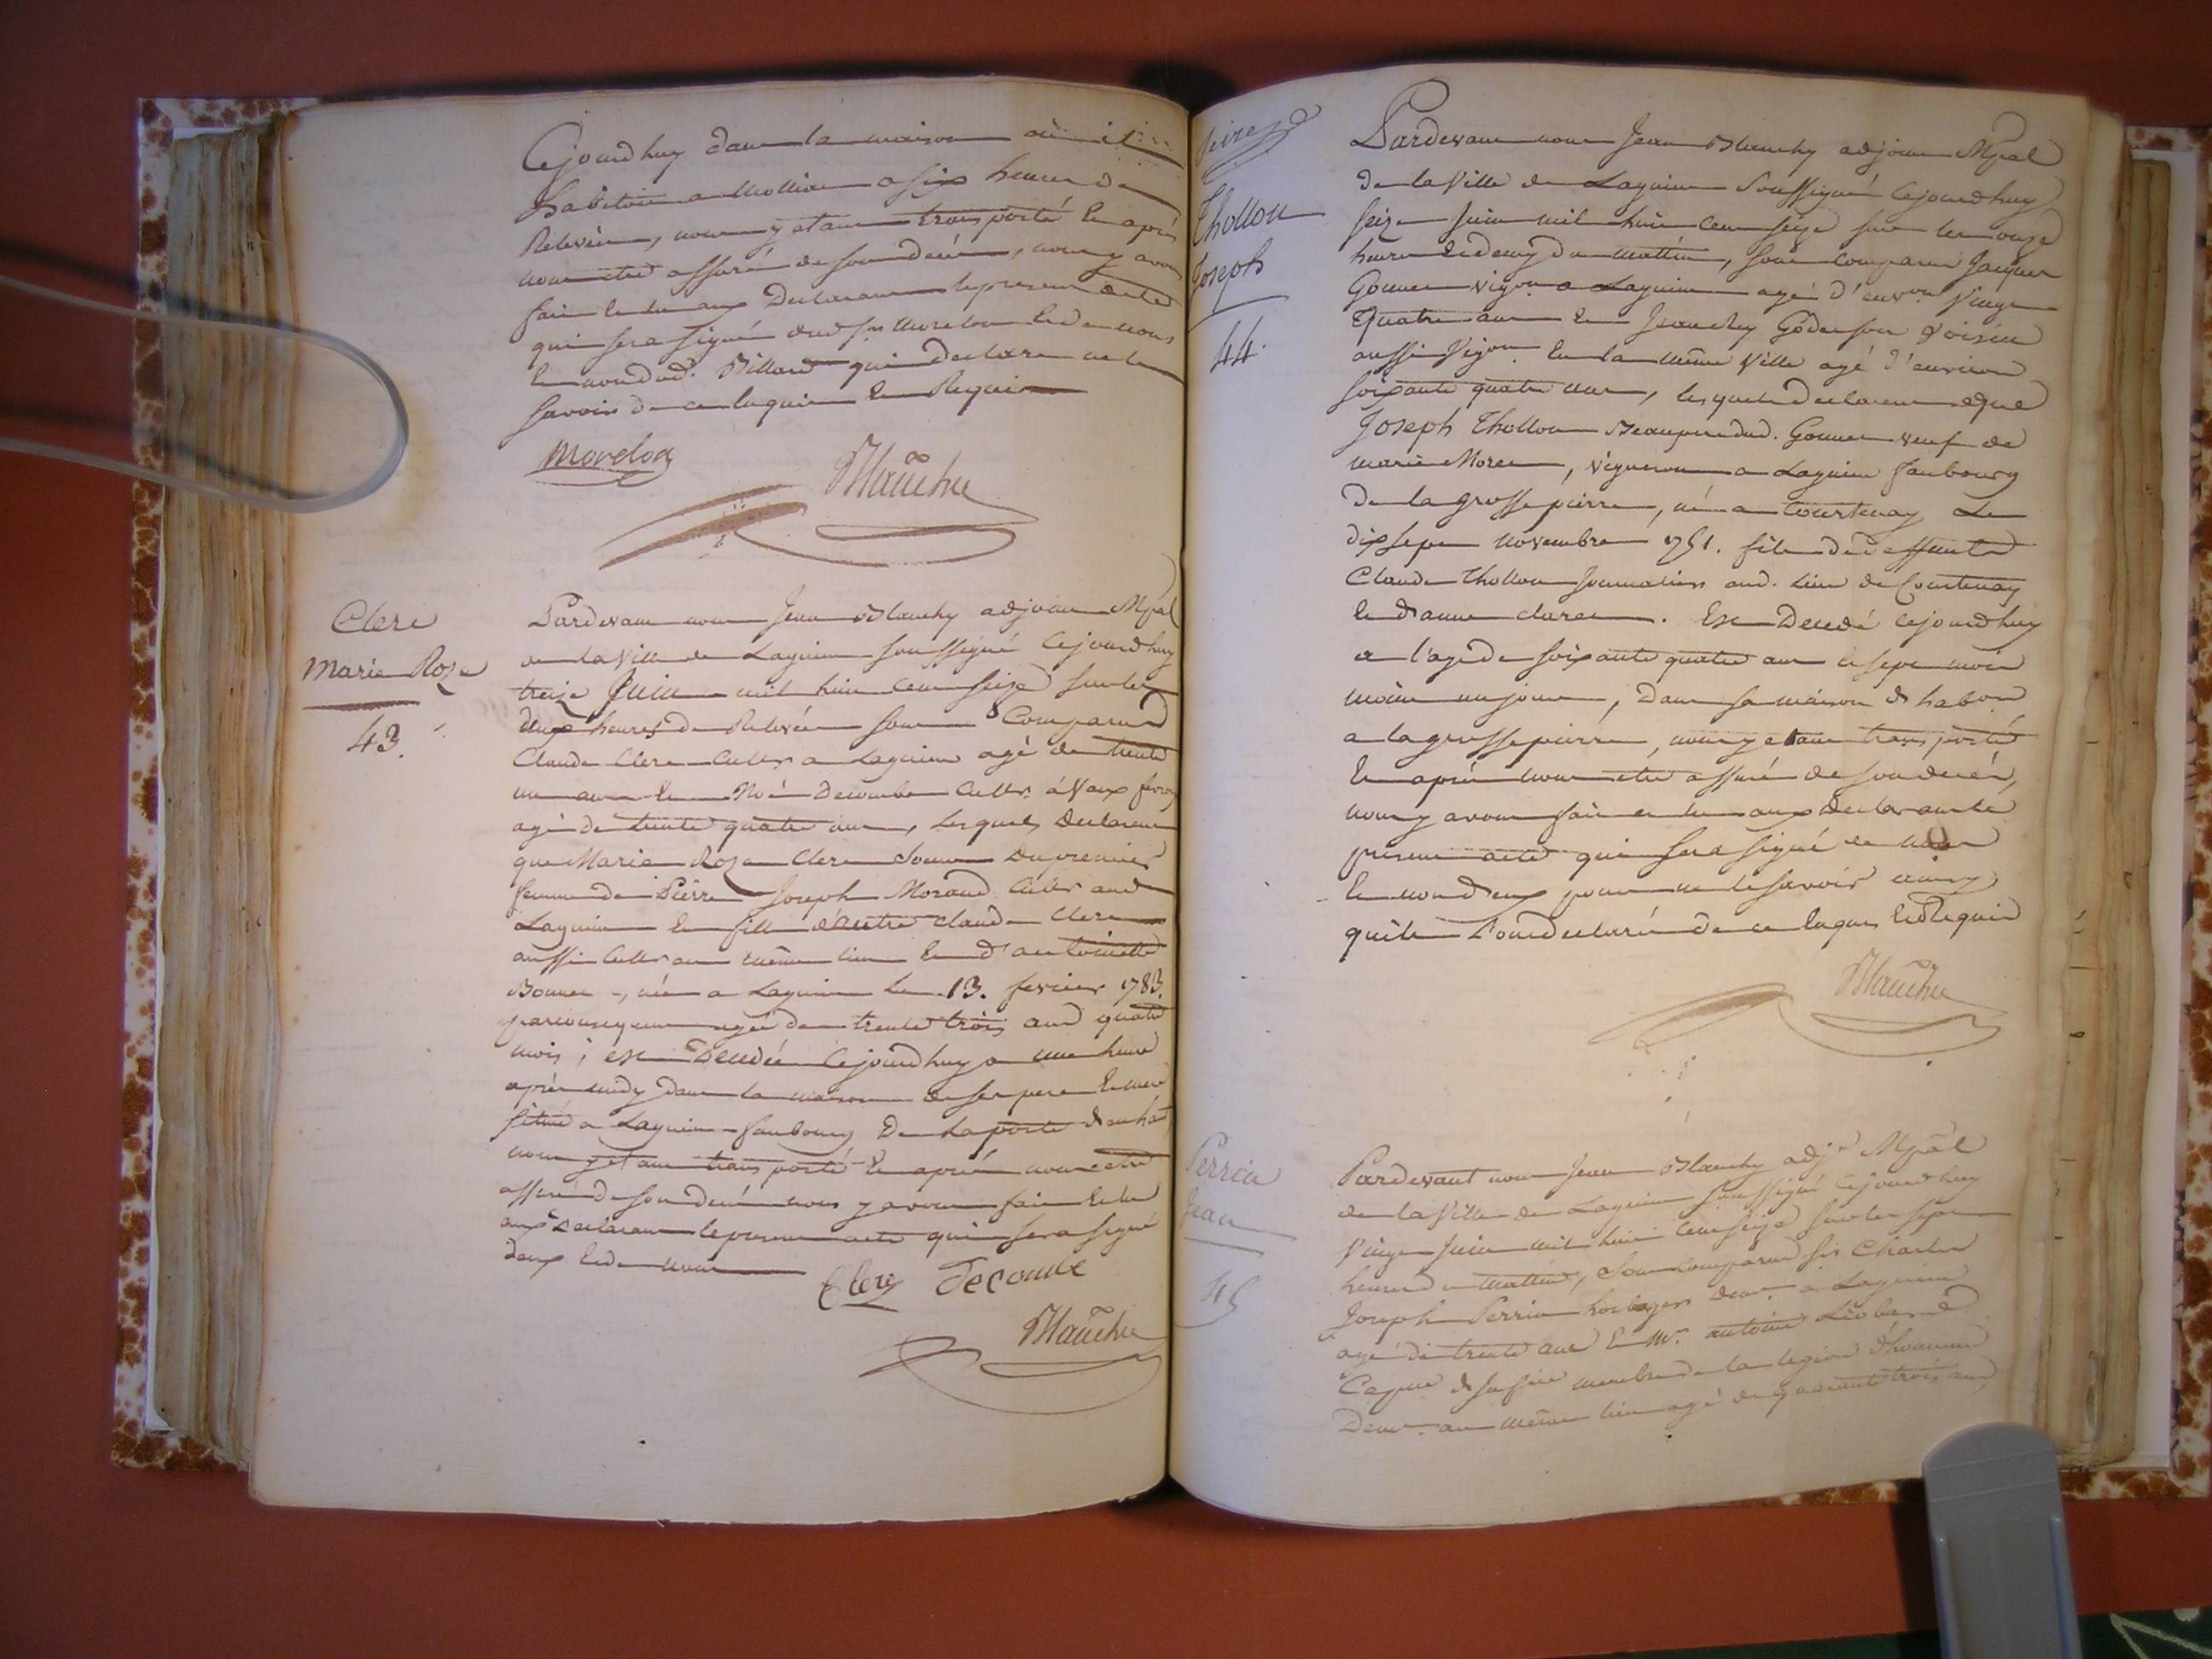 Cejourdhuy dans la maison où il
habitoit a Mollion a six heures de
Relevée, nous y etant transporté et après
nous etre assuré de son decés, nous y avons
fait et lu aux Declarans le present acte
qui sera signé dud. Sr Morelon et de nous
et non dud. Billard qui declare ne le
savoir de ce enquis et Requis
Morelon
Blanchy
Clerc
Marie Roze
43.
Pardevant nous Jean Blanchy adjoint Mpal
de la Ville de Lagnieu soussigné Cejourdhuy
treize Juin mil huit cent seize sur les
deux heures de Relevée sont Comparus
Claude Clerc Cultr a Lagnieu agé de trente
un ans et Noé Decombe Cultr. à Vaux
agé de trente quatre ans, Lesquels Declarent
que Marie Roze Clerc soeur du premier
femme de Pierre Joseph Morand Cultr aud
Lagnieu et fille d'autre Claude Clerc
aussi Cultr au même lieu et d'antoinette
Bonnet, née a Lagnieu le 13. fevrier 1783.
parconsequent agée de trente trois ans quatre
mois, est Decedée Cejourdhuy a une heure
après midy dans la maison de ses pere et mere
située a Lagnieu faubourg De la porte d'en haut
nous y etant transporté et après nous etre
assuré de son decés nous y avons fait et lu
aux Declarans le present acte qui sera signé
deux et de nous
Clerc Decombe
Blanchy
Thollon
Joseph
44.
Pardevant nous Jean Blanchy adjoint Mpal
de la Ville de Lagnieu Soussigné Cejourdhuy
seize Juin mil huit cent seize sur les onze
heures et demy du mattin, sont comparus Jacques
Gonnet vigon a Lagnieu agé d'environ Vingt
quatre ans et son voisin
aussi Vigon en la même Ville agé d'environ
soixante quatre ans, lesquels declarent que
Joseph Thollon Beaupere dud. Gonnet veuf de
marie Morel, vigneron a Lagnieu faubourg
De la grosse pierre, né a Courtenay Le
dix sept Novembre 1751. fils de deffunts
Claude Thollon Journalier aud. Lieu de Courtenay
et d'anne claret. Est Decedé Cejourdhuy
a l'age de soixante quatre ans et sept mois
moins un jour, dans sa maison d'habon
a la grosse pierre, nous y etant transporté
et après nous etre assuré de son decés,
nous y avons fait et lu aux Declarans le
present acte qui sera signé de nous
et non d'eux pour ne le savoir ainsy
qu'ils L'ont declaré de ce enquis et Requis
Blanchy
Perrin
Jean
45
Pardevant nous Jean Blanchy adjt Mpal
de la Ville de Lagnieu soussigné Cejourdhuy
Vingt Juin mil huit cent seize sur les sept
heures du mattin, sont comparus Srs Charles
Joseph Perrin horloger demt. a Lagnieu
agé de trente ans et Mr. antoine Léobard
Capne membre de la legion d'honneur
Demt. au même lieu agé de quarante trois ans